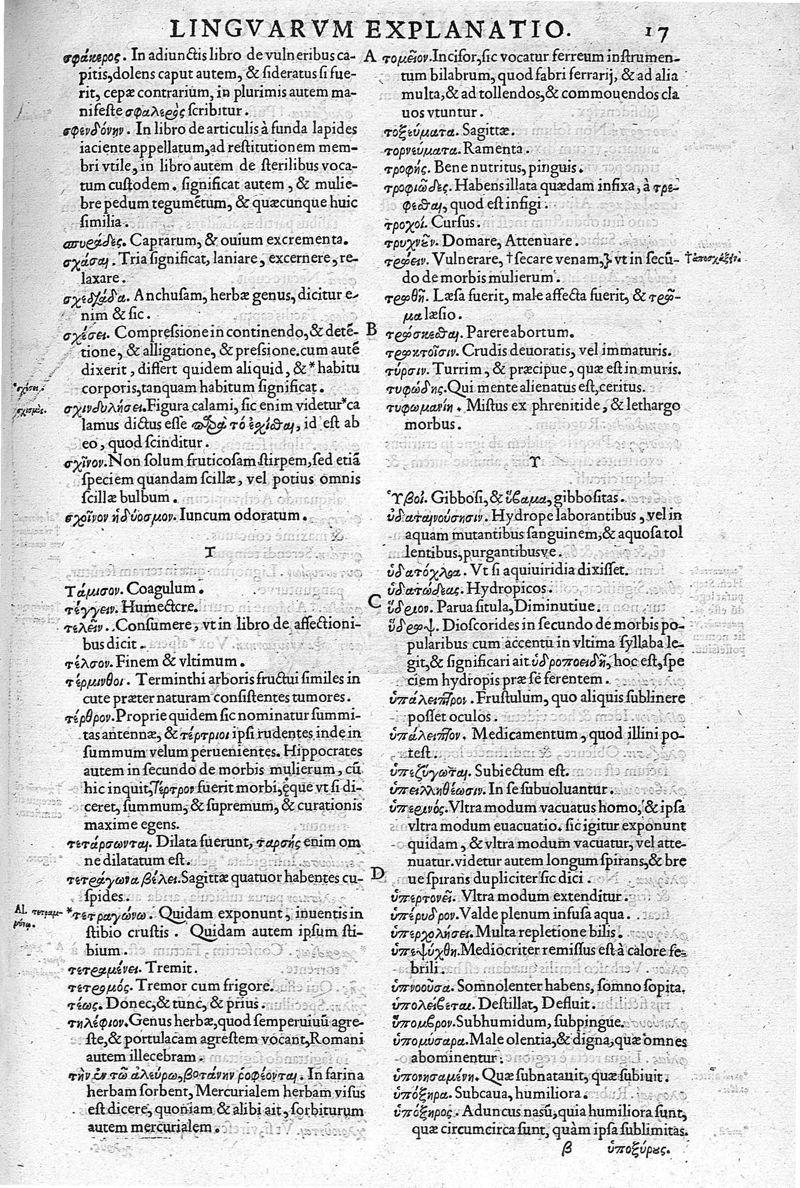 LINGVARVM EXPLANATIO. 17
σφάκερος. In adiunctis libro de vulneribus ca-
pitis, dolens caput autem, & sideratus si fue-
rit, cepæ contrarium, in plurimis autem ma-
nifeste σφαλερὸς scribitur.
σφενδόνην. In libro de articulis à funda lapides
iaciente appellatum, ad restitutionem mem-
bri vtile, in libro autem de sterilibus voca-
tum custodem. significat autem, & mulie-
bre pedum tegumētum, & quæcunque huic
similia.
σπυράδες. Caprarum, & ouium excrementa.
σχάσαι. Tria significat, laniare, excernere, re-
laxare.
Anchusam, herbæ genus, dicitur e-
nim & sic.
σχέσει. Compressione in continendo, & detē-
tione, & alligatione, & pressione. cum autē
dixerit, differt quidem aliquid, & * habitu
corporis, tanquam habitum significat.
σχινδυλήσει. Figura calami, sic enim videtur * ca
lamus dictus esse παρὰ τὸ id est ab
eo, quod scinditur.
σχῖνον. Non solum fruticosam stirpem, sed etiā
speciem quandam scillæ, vel potius omnis
scillæ bulbum.
σχοῖνον ἡδύοσμον. Iuncum odoratum.
T
Τάμισον. Coagulum.
τέγγειν. Humectcre.
τελεῖν. Consumere, vt in libro de affectioni-
bus dicit.
τέλσον. Finem & vltimum.
τέρμινθοι. Terminthi arboris fructui similes in
cute præter naturam consistentes tumores.
τέρθρον. Proprie quidem sic nominatur summi-
tas antennæ, & τέρτριοι ipsi rudentes inde in
summum velum peruenientes. Hippocrates
autem in secundo de morbis mulierum, cū
hic inquit, τέρτρον fuerit morbi, ęque vt si di-
ceret, summum, & supremum, & curationis
maxime egens.
τετάρσωνται. Dilata fuerunt, ταρσῆς enim om
ne dilatatum est.
τετράγωνα βέλει. Sagittæ quatuor habentes cu-
spides.
* τετραγώνω. Quidam exponunt, inuentis in
stibio crustis. Quidam autem ipsum sti-
bium.
τετραμένει. Tremit.
τετραμός. Tremor cum frigore.
τέως. Donec, & tunc, & prius.
τηλέφιον. Genus herbæ, quod semperuiuū agre-
ste, & portulacam agrestem vocant, Romani
autem illecebram.
τὴν ἐν τῶ ἀλεύρω, βοτάνην ῥοφέονται. In farina
herbam sorbent, Mercurialem herbam visus
est dicere, quoniam & alibi ait, sorbiturum
autem mercurialem.
*σχέσει.
*σχισμός.
Al. τετραμ-
A
B
C
D
τομεῖον. Incisor, sic vocatur ferreum instrumen-
tum bilabrum, quod fabri ferrarij, & ad alia
multa, & ad tollendos, & commouendos cla
uos vtuntur.
τοξεύματα. Sagittæ.
τορνεύματα. Ramenta.
τροφῆς. Bene nutritus, pinguis.
τροφιώδες. Habens illata quædam infixa, à τρε-
φεσθαι, quod est infigi.
τροχοί. Cursus.
τρυχνεῖν. Domare, Attenuare.
τρώειν. Vulnerare, † secare venam, vt in secū-
do de morbis mulierum.
τρωθῇ. Læsa fuerit, male affecta fuerit, & τρῶ-
μα læsio.
τρώσκεσθαι. Parere abortum.
τρωκτοῖσιν. Crudis deuoratis, vel immaturis.
τύρσιν. Turrim, & præcipue, quæ est in muris.
τυφώδης. Qui mente alienatus est, ceritus.
τυφωμανίη. Mistus ex phrenitide, & lethargo
morbus.
Υ
Ὑβοί. Gibbosi, & ὕβωμα, gibbositas.
Hydrope laborantibus, vel in
aquam mutantibus sanguinem, & aquosa tol
lentibus, purgantibusve.
ὑδατόχλοα. Vt si aquiuiridia dixisset.
ὑδατώδεας. Hydropicos.
ὕδριον. Parua situla, Diminutiue.
ὕδρωψ. Dioscorides in secundo de morbis po-
pularibus cum accentu in vltima syllaba le-
git, & significari ait ὑδροποειδῆ, hoc est, spe
ciem hydropis præ se ferentem.
ὑπάλειπτρον. Frustulum, quo aliquis sublinere
posset oculos.
ὑπάλειπτον. Medicamentum, quod illini po-
test.
ὑπεζύγωται. Subiectum est.
ὑπειλληθέωσιν. In se subuoluantur.
ὑπερινός. Vltra modum vacuatus homo, & ipsa
vltra modum euacuatio. sic igitur exponunt
quidam, & vltra modum vacuatur, vel atte-
nuatur. videtur autem longum spirans, & bre
ue spirans dupliciter sic dici.
ὑπερτονεῖ. Vltra modum extenditur.
ὑπέρυδρον. Valde plenum infusa aqua.
ὑπερχολήσει. Multa repletione bilis.
ὑπεψύχθη. Mediocriter remissus est à calore fe-
brili.
ὑπνοοῦσα. Somnolenter habens, somno sopita.
ὑπολείβεται. Destillat, Defluit.
ὕπομβρον. Subhumidum, subpingue.
ὑπομύσαρα. Male olentia, & digna, quæ omnes
abominentur.
ὑπονησαμένη. Quæ subnatauit, quæ subiuit.
ὑπόξηρα. Subcaua, humiliora.
ὑπόξηρος. Aduncus nasū, quia humiliora sunt,
quæ circumcirca sunt, quàm ipsa sublimitas.
β ὑποξύρους.